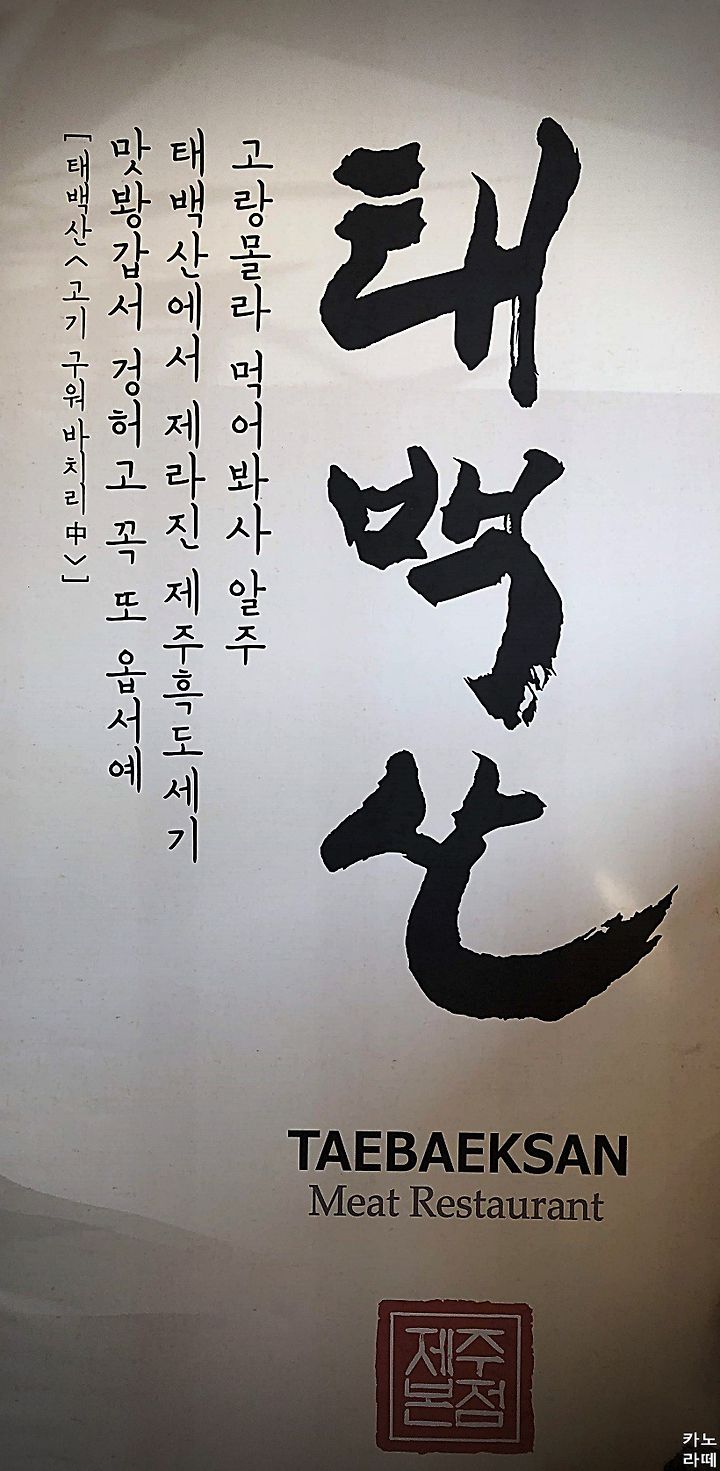 태백산
고랑몰라 먹어봐사 알주
태백산에서 제라진 제주흑도세기
맛봥갑서 겅허고 꼭 또 옵서예
[태백산<고기 구워 바치리 中>]
TAEBAEKSAN
Meat Restaurant
제주
본점
카노
라떼